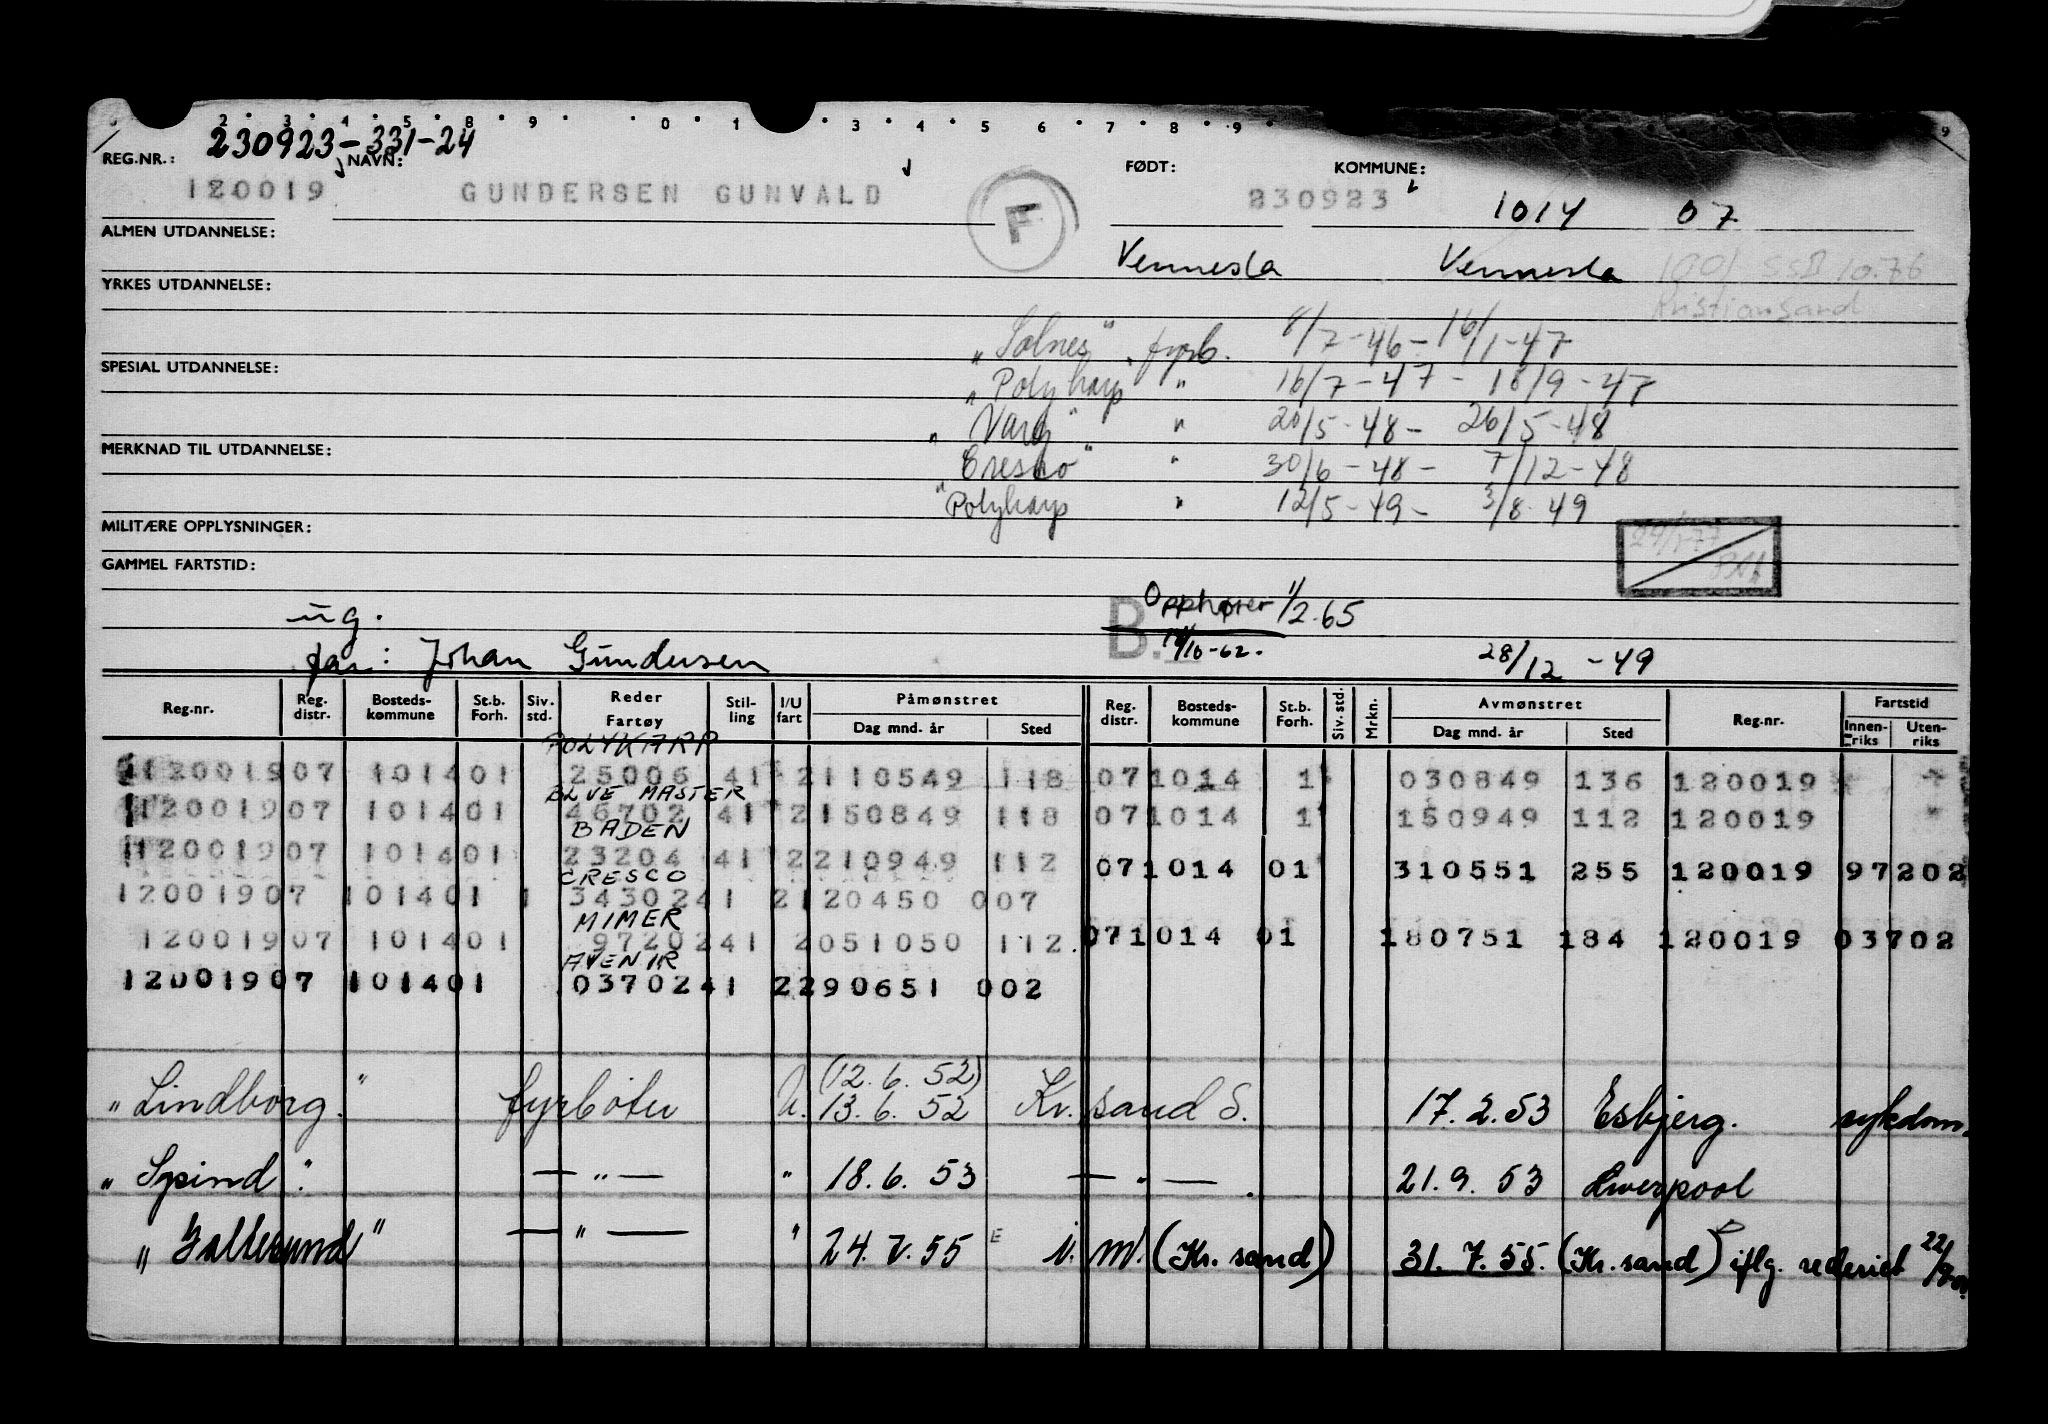 230923-331-24
REG.NR.: NAVN: FØDT: KOMMUNE:
120019 GUNDERSEN GUNVALD F 230923 1014 07
ALMEN UTDANNELSE:
Vennesla Vennesla 1001 10.76
YRKES UTDANNELSE: Kristiansand
"Solnes" fyrb. 8/7-46 - 16/1-47
SPESIAL UTDANNELSE:
"Polyharp" " 16/7-47 - 18/9-47
"Varg" " 20/5-48 - 26/5-48
MERKNAD TIL UTDANNELSE:
Cresco" " 30/6-48 - 7/12-48
"Polyharp " 12/5-49 - 3/8-49
MILITÆRE OPPLYSNINGER:
GAMMEL FARTSTID:
ug. B. Opphører 1/2.65
far: Johan Gundersen 28/12-49
Reg.nr. Reg. distr. Bosteds-kommune St.b. Forh. Siv. std. Reder Fartøy Stil-ling I/U fart Påmønstret Dag mnd. år Sted Reg. distr. Bosteds-kommune St.b. Forh. Siv. std. Mrkn. Avmønstret Dag mnd. år Sted Reg.nr. Fartstid Innen-riks Uten-riks
POLYKARP
120019 07 1014 01 25006 41 2 110549 118 07 1014 1 030849 136 120019
BLUE MASTER
120019 07 1014 01 46702 41 2 150849 118 07 1014 1 150949 112 120019
BADEN
120019 07 1014 01 23204 41 2 210949 112 07 1014 01 310551 255 120019 97202
CRESCO
120019 07 1014 01 1 34302 41 2 120450 007
MIMER
120019 07 1014 01 97202 41 2 051050 112 07 1014 01 180751 184 120019 03702
AVENIR
120019 07 1014 01 03702 41 2 290651 002
(12.6.52)
"Lindborg." fyrbøter U. 13.6.52 Kr.sand S. 17.2.53 Esbjerg. sykdom.
"Spind". — " — " 18.6.53 — " — . 21.9.53 Liverpool
"Galtesund" — " — " 24.7.55 E (Kr.sand) 31.7.55. (Kr.sand) iflg. rederiet